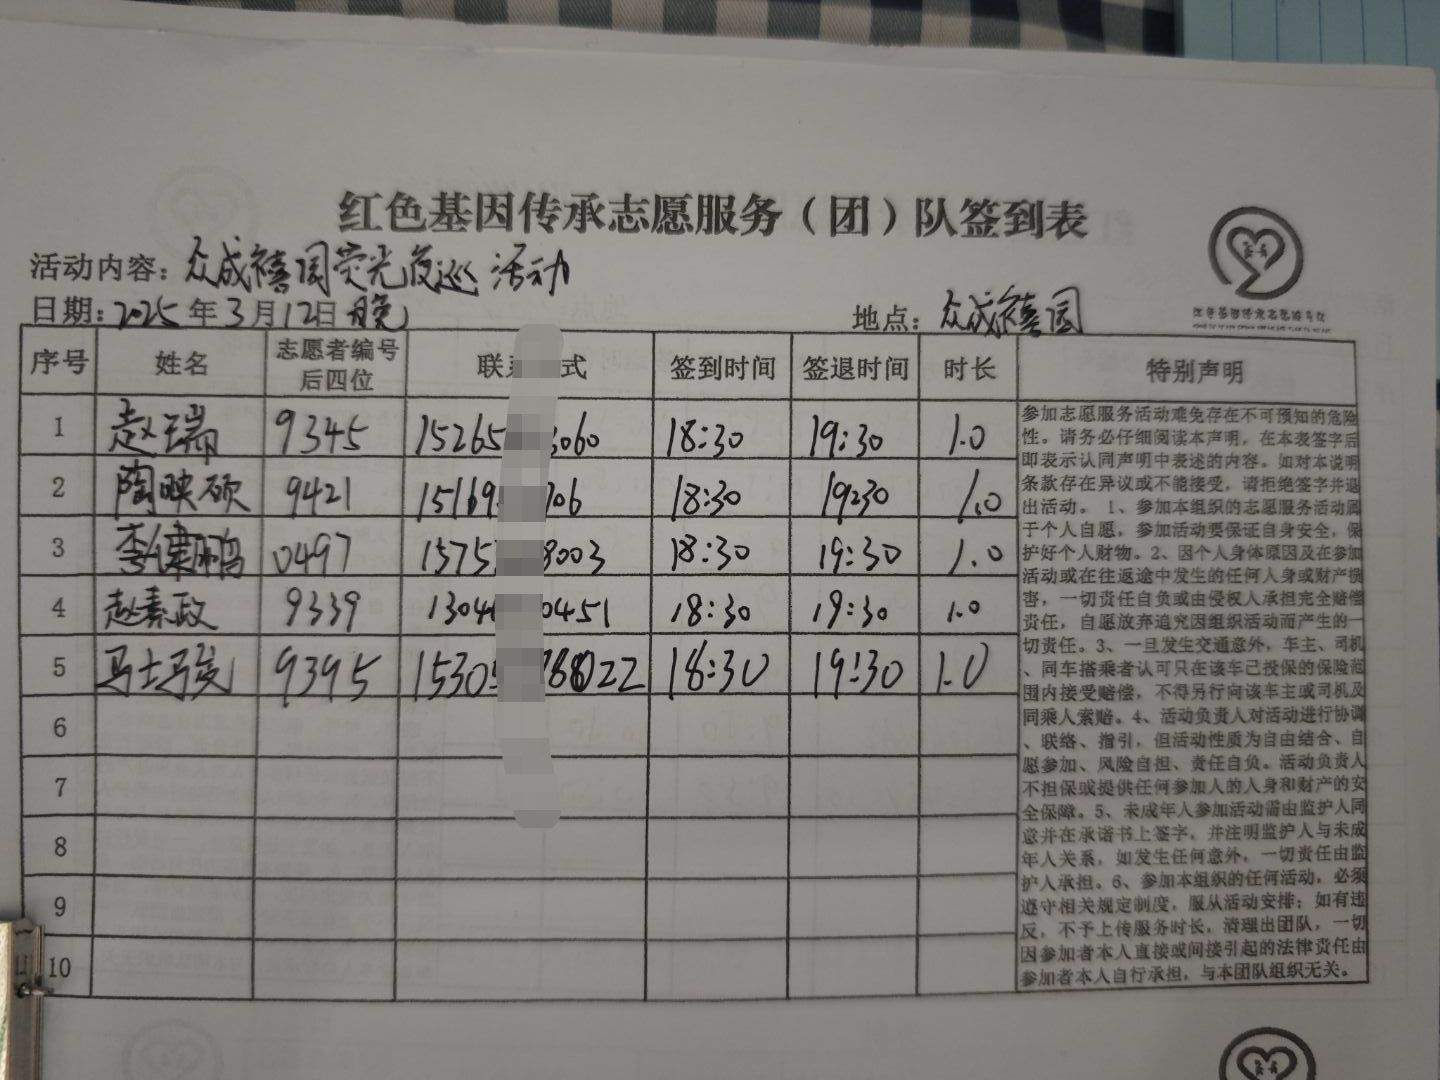 红色基因传承志愿服务（团）队签到表
活动内容：众成禧园荧光夜巡 活动
日期：2025年3月12日晚
地点：众成禧园
序号 姓名 志愿者编号后四位 联 式 签到时间 签退时间 时长 特别声明
1 赵瑞 9345 15265 3060 18:30 19:30 1.0
2 陶映硕 9421 15169 306 18:30 19:30 1.0
3 李健鹏 0497 15753 8003 18:30 19:30 1.0
4 赵素政 9339 1304 0451 18:30 19:30 1.0
5 马士骏 9395 15305 022 18:30 19:30 1.0
6
7
8
9
10
参加志愿服务活动难免存在不可预知的危险
性。请务必仔细阅读本声明，在本表签字后
即表示认同声明中表述的内容。如对本说明
条款存在异议或不能接受，请拒绝签字并退
出活动。1、参加本组织的志愿服务活动属
于个人自愿，参加活动要保证自身安全，保
护好个人财物。2、因个人身体原因及在参加
活动或在往返途中发生的任何人身或财产损
害，一切责任自负或由侵权人承担完全赔偿
责任，自愿放弃追究因组织活动而产生的一
切责任。3、一旦发生交通意外，车主、司机
、同车搭乘者认可只在该车已投保的保险范
围内接受赔偿，不得另行向该车主或司机及
同乘人索赔。4、活动负责人对活动进行协调
、联络、指引，但活动性质为自由结合、自
愿参加、风险自担、责任自负。活动负责人
不担保或提供任何参加人的人身和财产的安
全保障。5、未成年人参加活动需由监护人同
意并在承诺书上签字，并注明监护人与未成
年人关系，如发生任何意外，一切责任由监
护人承担。6、参加本组织的任何活动，必须
遵守相关规定制度，服从活动安排；如有违
反，不予上传服务时长，清理出团队，一切
因参加者本人直接或间接引起的法律责任由
参加者本人自行承担，与本团队组织无关。